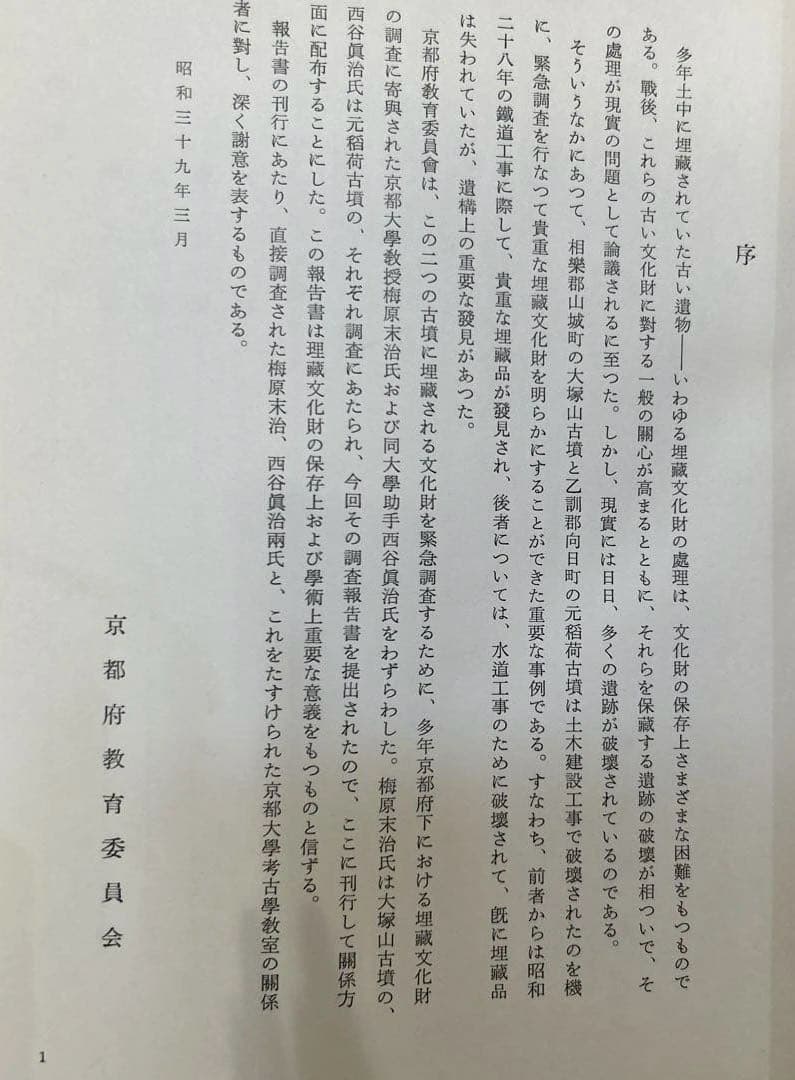 序
多年土中に埋藏されていた古い遺物――いわゆる埋藏文化財の處理は、文化財の保存上さまざまな困難をもつもので
ある。戰後、これらの古い文化財に對する一般の關心が高まるとともに、それらを保藏する遺跡の破壞が相ついで、そ
の處理が現實の問題として論議されるに至つた。しかし、現實には日日、多くの遺跡が破壞されているのである。
そういうなかにあつて、相樂郡山城町の大塚山古墳と乙訓郡向日町の元稻荷古墳は土木建設工事で破壞されたのを機
に、緊急調査を行なつて貴重な埋藏文化財を明らかにすることができた重要な事例である。すなわち、前者からは昭和
二十八年の鐵道工事に際して、貴重な埋藏品が發見され、後者については、水道工事のために破壞されて、旣に埋藏品
は失われていたが、遺構上の重要な發見があつた。
京都府敎育委員會は、この二つの古墳に埋藏される文化財を緊急調査するために、多年京都府下における埋藏文化財
の調査に寄與された京都大學敎授梅原末治氏および同大學助手西谷眞治氏をわずらわした。梅原末治氏は大塚山古墳の、
西谷眞治氏は元稻荷古墳の、それぞれ調査にあたられ、今回その調査報告書を提出されたので、ここに刊行して關係方
面に配布することにした。この報告書は理藏文化財の保存上および學術上重要な意義をもつものと信ずる。
報告書の刊行にあたり、直接調査された梅原末治、西谷眞治兩氏と、これをたすけられた京都大學考古學敎室の關係
者に對し、深く謝意を表するものである。
昭和三十九年三月
京都府教育委員会
1